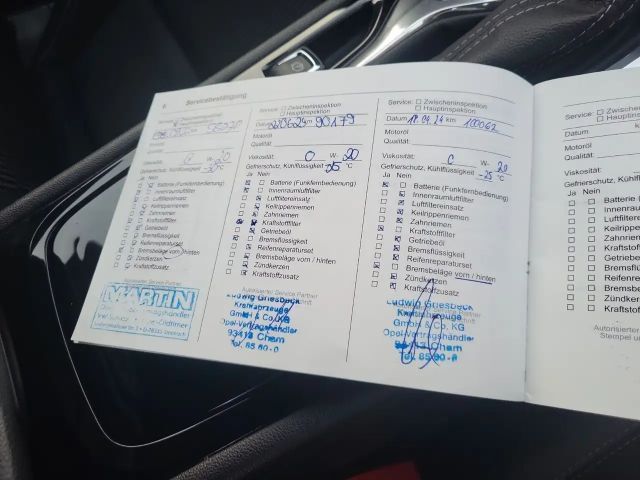 6 Servicebestätigung
Ja Nein
Batterie (Funkfernbedienung)
Innenraumluftfilter
Luftfiltereinsatz
Keilrippenriemen
Zahnriemen
Kraftstofffilter
Getriebeöl
Bremsflüssigkeit
Reifenreparaturset
Bremsbeläge vorn / hinten
Zündkerzen
Kraftstoffzusatz
MARTIN
Service: Zwischeninspektion
Hauptinspektion
km 90179
Motoröl
Qualität:
Viskosität: 0 W- 20
Gefrierschutz, Kühlflüssigkeit -25 °C
Ja Nein
Batterie (Funkfernbedienung)
Innenraumluftfilter
Luftfiltereinsatz
Keilrippenriemen
Zahnriemen
Kraftstofffilter
Getriebeöl
Bremsflüssigkeit
Reifenreparaturset
Bremsbeläge vorn / hinten
Zündkerzen
Kraftstoffzusatz
Autorisierter Service Partner
Ludwig Griesbeck
Kraftfahrzeuge
GmbH & Co. KG
Opel-Vertragshändler
93413 Cham
Tel. 85 90-0
Service: Zwischeninspektion
Hauptinspektion
Datum 17.04.24 km 100062
Motoröl
Qualität:
Viskosität: 0 W- 20
Gefrierschutz, Kühlflüssigkeit -25 °C
Ja Nein
Batterie (Funkfernbedienung)
Innenraumluftfilter
Luftfiltereinsatz
Keilrippenriemen
Zahnriemen
Kraftstofffilter
Getriebeöl
Bremsflüssigkeit
Reifenreparaturset
Bremsbeläge vorn / hinten
Zündkerzen
Kraftstoffzusatz
Ludwig Griesbeck
Kraftfahrzeuge
GmbH & Co. KG
Opel-Vertragshändler
93413 Cham
Tel. 85 90-0
Service:
Datum
Motoröl
Qualität:
Viskosität:
Gefrierschutz, Küh
Ja Nein
Batterie (F
Innenraum
Luftfilter
Keilrippe
Zahnriem
Kraftstof
Getriebe
Bremsflü
Reifenre
Bremsbe
Zündker
Kraftstof
Autorisierter
Stempel u